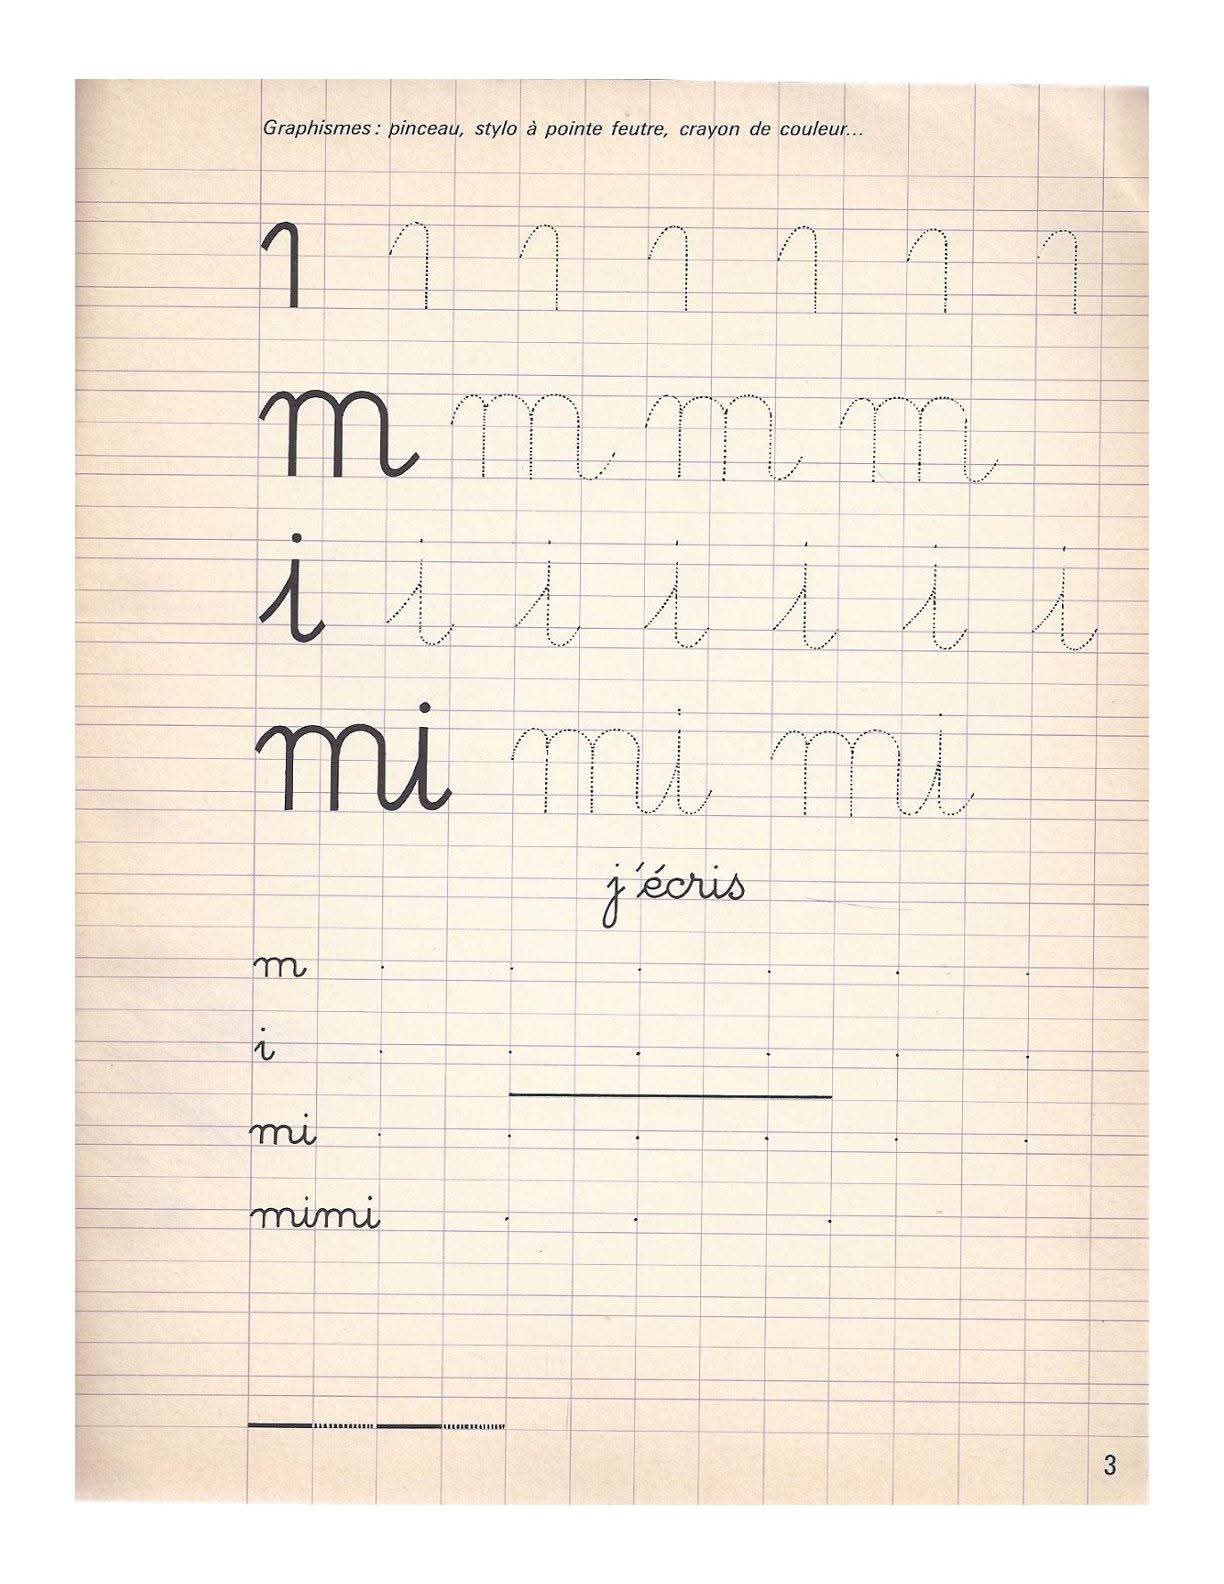 Graphismes : pinceau, stylo à pointe feutre, crayon de couleur...
1 1 1 1 1 1 1
m m m m
i i i i i i i
mi mi mi
j'écris
m . . . . . .
i . . . . . .
mi . . . . . .
mimi . . .
3